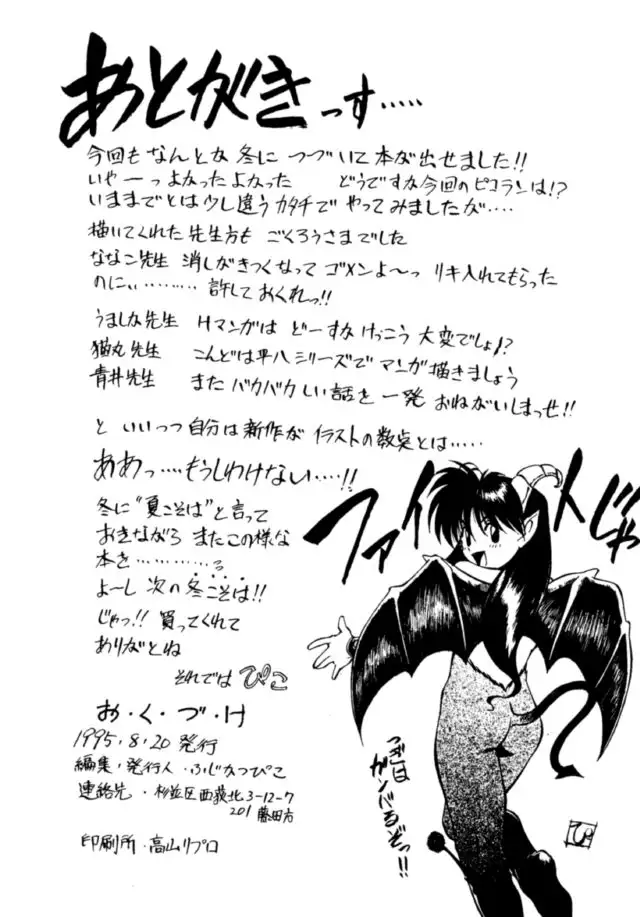 あとがきっす‥‥‥
今回もなんとか冬につづいて本が出せました!!
いやーっよかったよかった どうですか今回のピコランは!?
いままでとは少し違うカタチでやってみましたが‥‥
描いてくれた先生方もごくろうさまでした
ななこ先生 消しがきつくなってゴメンよ〜っ リキ入れてもらった
のにぃ‥‥‥‥‥ 許しておくれっ!!
うましか先生 Hマンガはどーすかけっこう大変でしょ!?
猫丸先生 こんどは平八シリーズでマンガ描きましょう
青井先生 またバカバカしい話を一発おねがいしまっせ!!
といいつつ自分は新作がイラストの数点とは‥‥‥
ああっ‥‥もうしわけない‥‥!!
冬に"夏こそば"と言って
おきながら またこの様な
本を‥‥‥‥‥‥
よーし 次の冬こそは!!
じゃっ!! 買ってくれて
ありがとね
それでは ぴこ
ファイトじゃ
お・く・づ・け
1995.8.20 発行
編集・発行人・ふじなつぴこ
連絡先・杉並区西荻北3-12-7
201 藤田方
印刷所・高山リプロ
つぎは
ガンバるぞっ!!
ぴ